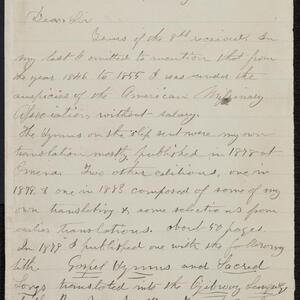 Dear Sir
Yours of the 8th received. In
my last I omitted to mention that from
the year 1846 to 1855 I was under the
auspicies of the American Missionary
Association, without salary.
The Hymns on the slip sent were my own
translation mostly published in 1878 at
Omena. Two other editions, one in
1879 & one in 1883 composed of some of my
own translating & some selections from
earlier translations. about 50 pages.
In 1879 I published one with the following
title Gospel Hymns and Sacred
Songs translated into the Ojebway Language